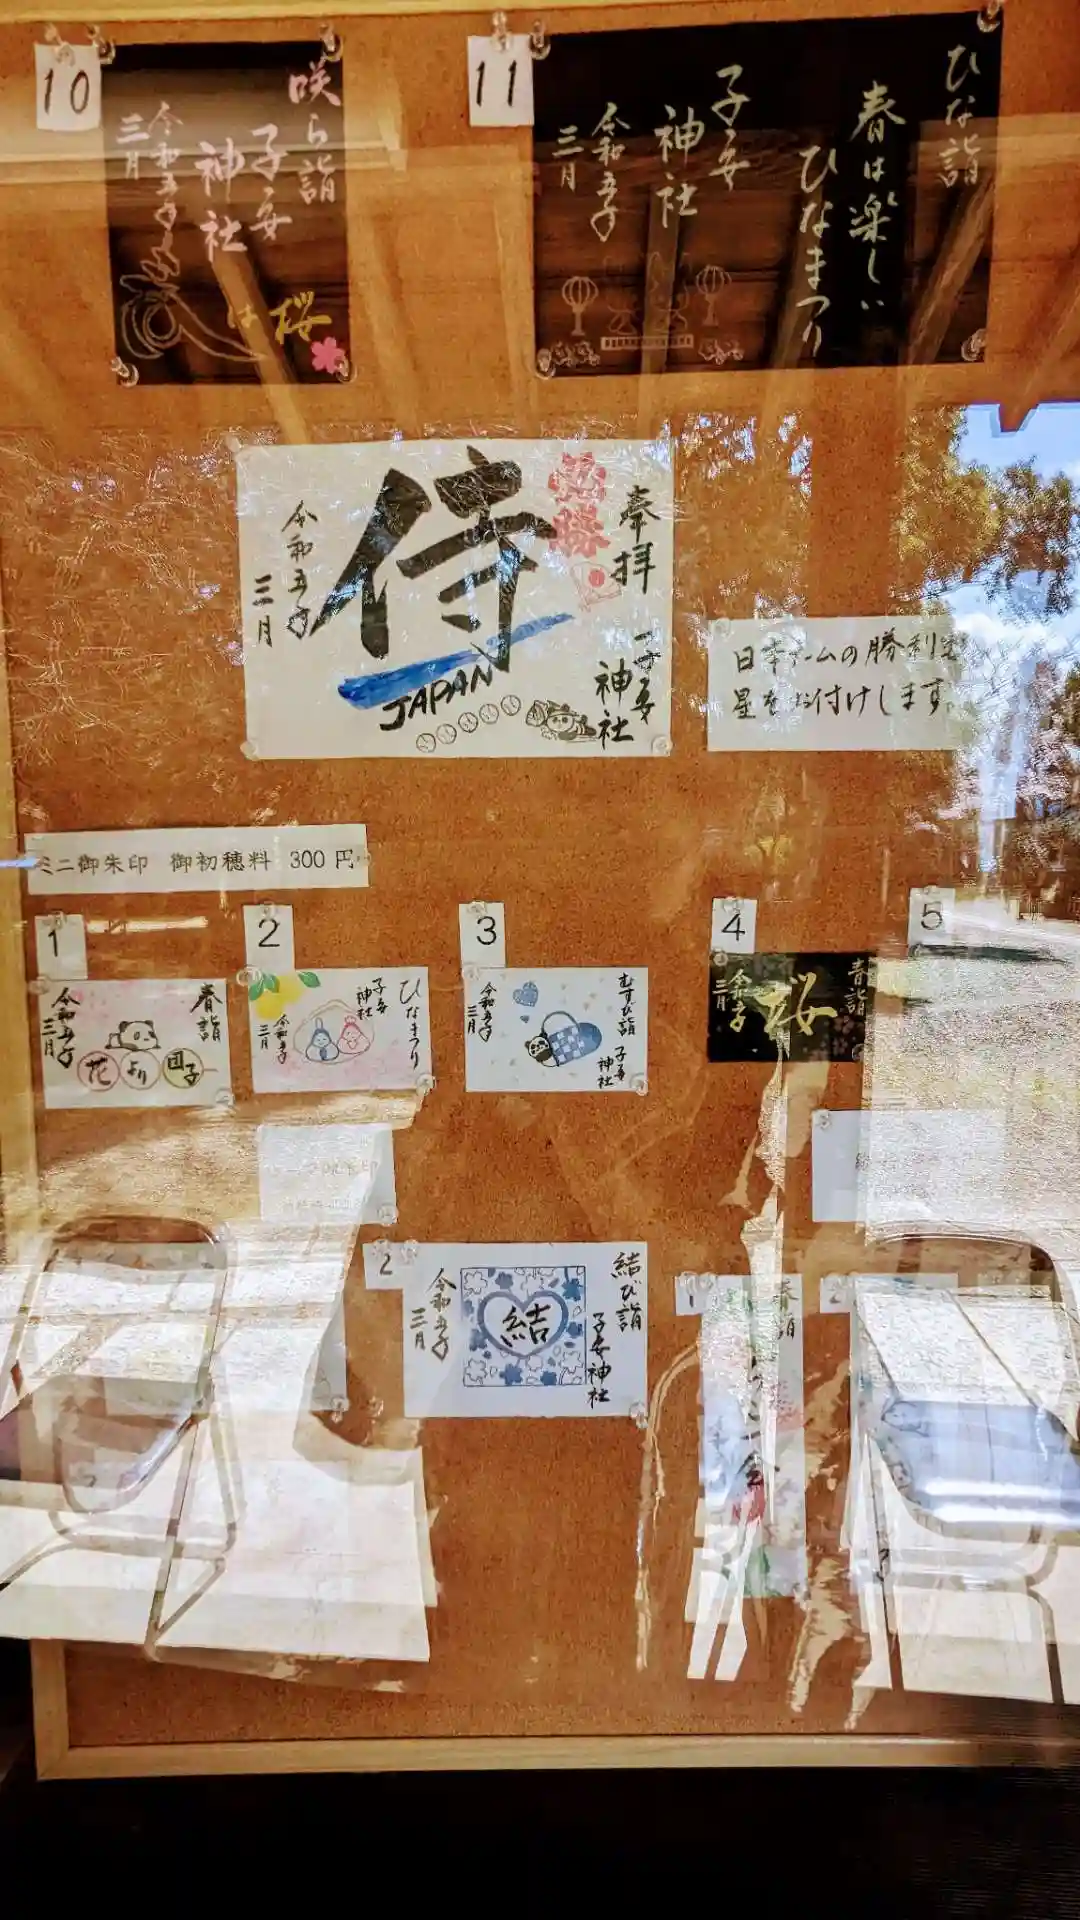 10
咲ら詣
子安
神社
令和五年
三月
桜
は
11
ひな詣
春は楽しい
ひなまつり
子安
神社
令和五年
三月
必勝
奉拝
子安
神社
侍
JAPAN
令和五年
三月
日本チームの勝利を
星をお付けします。
ミニ御朱印 御初穂料 300円
1
春詣
花より団子
令和五年
三月
2
ひなまつり
子安
神社
令和五年
三月
3
むすび詣
子安
神社
令和五年
三月
4
春詣
桜
令和五年
三月
5
2
結び詣
子安神社
結
令和五年
三月
1
春詣
2
3